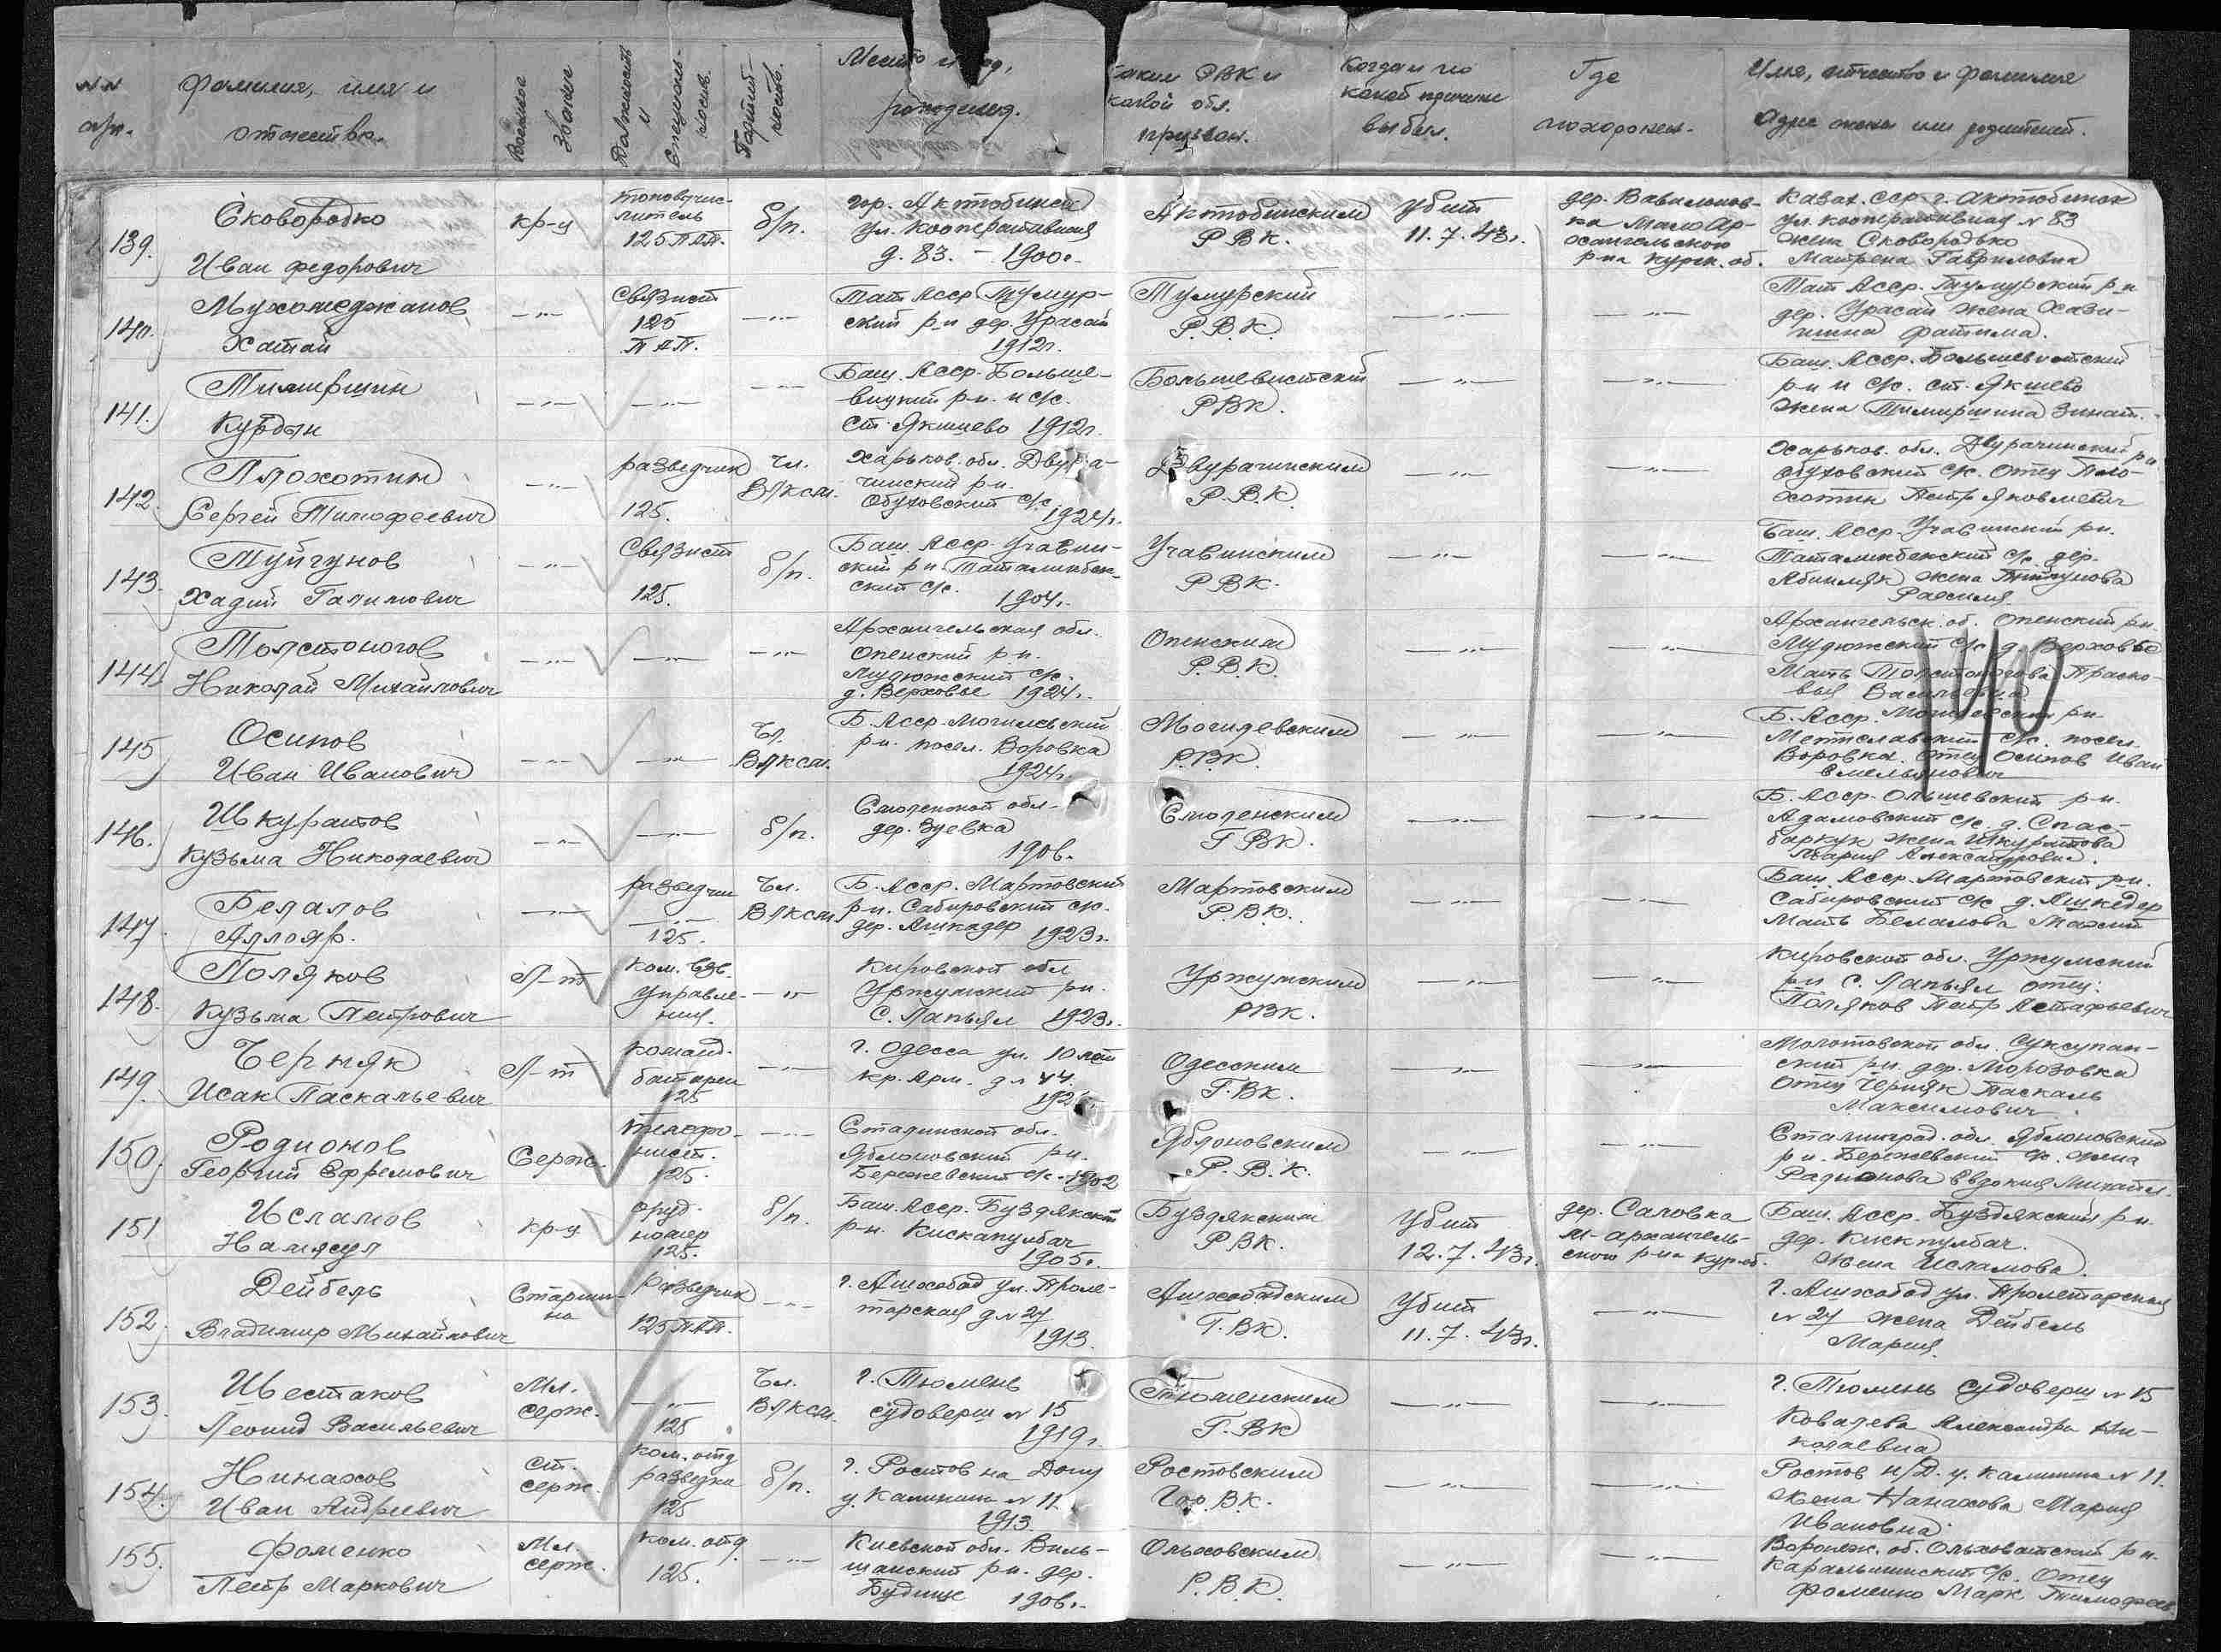 NN п/п.
Фамилия, имя и отчество.
Военное звание
Должность и специальность.
Партийность.
Место и год рождения.
Каким РВК и какой обл. призван.
Когда и по какой причине выбыл.
Где похоронен.
Имя, отчество и фамилия
Адрес жены или родителей.
139. Сковородко Иван Федорович
кр-ц
125 ПАП.
б/п.
гор. Актюбинск
ул. Кооперативная
д. 83. – 1900г.
Актюбинским
РВК.
Убит
11.7.43г.
дер. Вавилонов-
ка Мало Ар-
хангельского
р-на Курск. об.
Казах. сср г. Актюбинск
ул. Кооперативная N 83
жена Сковородько
Матрена Гавриловна
140. Мухомеджанов Хатай
—"—
Связист
125
ПАП.
—"—
Тат Асср Тумур-
ский р-н дер. Урасай
1912г.
Тумурский
Р.В.К.
—"—
—"—
Тат Асср. Тумурский р-н
дер. Урасай жена Хази-
Фатима.
141. Тимиршин Курбан
—"—
—"—
—"—
Баш. Асср. Больше-
вицкий р-н. и с/с.
ст. Якшиево 1912г.
Большевистский
РВК.
—"—
—"—
Баш. Асср. Большевистский
р-н и с/с. ст. Якшево
жена Тимиршина Зинат.
142. Плохотин Сергей Тимофеевич
—"—
разведчик
125.
Чл.
ВЛКСМ.
Харьков. обл. Двура-
чинский р-н.
Обуховский с/с
1924г.
Двурачинским
Р.В.К.
—"—
—"—
Харьков. обл. Двурачинский р-н
Обуховский с/с. Отец Пло-
хотин Петр Яковлевич
143. Туйгунов Хадий Галимович
—"—
Связист
125.
б/п.
Баш. Асср Учалин-
ский р-н Таталинбек-
ский с/с. 1904г.
Учалинским
РВК.
—"—
—"—
Баш. Асср Учалинский р-н.
Таталинбекский с/с. дер.
жена
144. Толстоногов Николай Михайлович
—"—
—"—
—"—
Архангельская обл.
Оненский р-н.
Мудюжский с/с.
д. Верховье 1924г.
Оненским
Р.В.К.
—"—
—"—
Архангельск. об. Оненский р-н.
Мудюжский с/с д. Верховье
Мать Толстоногова Праско-
вья Васильевна
145 Осипов Иван Иванович
—"—
—"—
Чл.
ВЛКСМ.
Б. Асср. Могилевский
р-н. посел. Воровка
1924г.
Могилевским
Р.ВК.
—"—
—"—
Б. Асср. Могилевский р-н
с/с. посел.
Воровка. Отец Осипов Иван
Емельянович
146. Шкуратов Кузьма Николаевич
—"—
—"—
б/п.
Смоленской обл.
дер. Зуевка
1906.
Смоленским
ГВК.
—"—
—"—
Б. Асср. Ольшевский р-н.
Адамовский с/с. д. Спас-
баркук жена Шкуратова
Мария Александровна.
147. Белалов Аллояр.
—"—
разведчик
—"—
125.
Чл.
ВЛКСМ
Б. Асср. Мартовский
р-н. Сабировский с/с.
дер. Ашкадер 1923г.
Мартовским
Р.ВК.
—"—
—"—
Баш. Асср. Мартовский р-н.
Сабировский с/с д. Ашкедер
Мать Белалова
148. Поляков Кузьма Петрович
Л-т
Ком. взв.
управле-
ния.
—"—
Кировской обл
Уржумский р-н.
с. Лапьял 1923г.
Уржумским
РВК.
—"—
—"—
Кировской обл. Уржумский
р-н с. Лапьял отец:
Поляков Петр Астафьевич
149. Черняк Исак Паскальевич
Л-т
Команд.
батареи
125
—"—
г. Одесса ул. 10 лет
кр. Арм. д. N 44.
Одесским
Г.ВК.
—"—
—"—
Молотовской обл. Суксупан-
ский р-н. дер. Морозовка
Отец Черняк Паскаль
Максимович
150. Родионов Георгий Ефремович
Серж.
телефо-
нист.
125.
—"—
Сталинской обл.
Яблоновский р-н.
Бережевский с/с. 1902
Яблоновским
Р.В.К.
—"—
—"—
Сталинград. обл. Яблоновский
р-н. Бережевский с/с. жена
Радионова Евдокия Михайл.
151 Исламов Намясул
кр-ц
оруд.
номер
125.
б/п.
Баш. Асср. Буздякский
р-н. Кискапулбач
1905г.
Буздякским
РВК.
Убит
12.7.43г.
дер. Саловка
М-Архангель-
ского р-на Кур. об.
Баш. Асср. Буздякский р-н.
дер. Кискпулбач.
Жена Исламова.
152. Дейбель Владимир Михайлович
Старши-
на
Разведчик
125 ПАП.
—"—
г. Ашхобад ул. Проле-
тарская д N 27
1913.
Ашхобадским
Г.ВК.
Убит
11.7.43г.
—"—
г. Ашхобад ул. Пролетарская
N 27 жена Дейбель
Мария.
153. Шестаков Леонид Васильевич
Мл.
серж.
—"—
125
Чл.
ВЛКСМ.
г. Тюмень
судоверш N 15
1919г.
Тюменским
Г.ВК
—"—
—"—
г. Тюмень судоверш N 15
Ковалева Александра Ни-
колаевна
154. Нинахов Иван Андреевич
ст.
серж.
Ком. отд
разведки
125
б/п.
г. Ростов на Дону
у. Калинина N 11.
1913.
Ростовским
Гор.В.К.
—"—
—"—
Ростов н/Д. у. Калинина N 11.
Жена Нанахова Мария
Ивановна.
155. Фоменко Петр Маркович
Мл.
серж.
Ком. отд.
125.
—"—
Киевской обл. Виль-
шанский р-н. дер.
Будище 1906г.
Ольховским
Р.В.К.
—"—
—"—
Воронеж. об. Ольховатский р-н.
с/с. Отец
Фоменко Марк Тимофеев
140